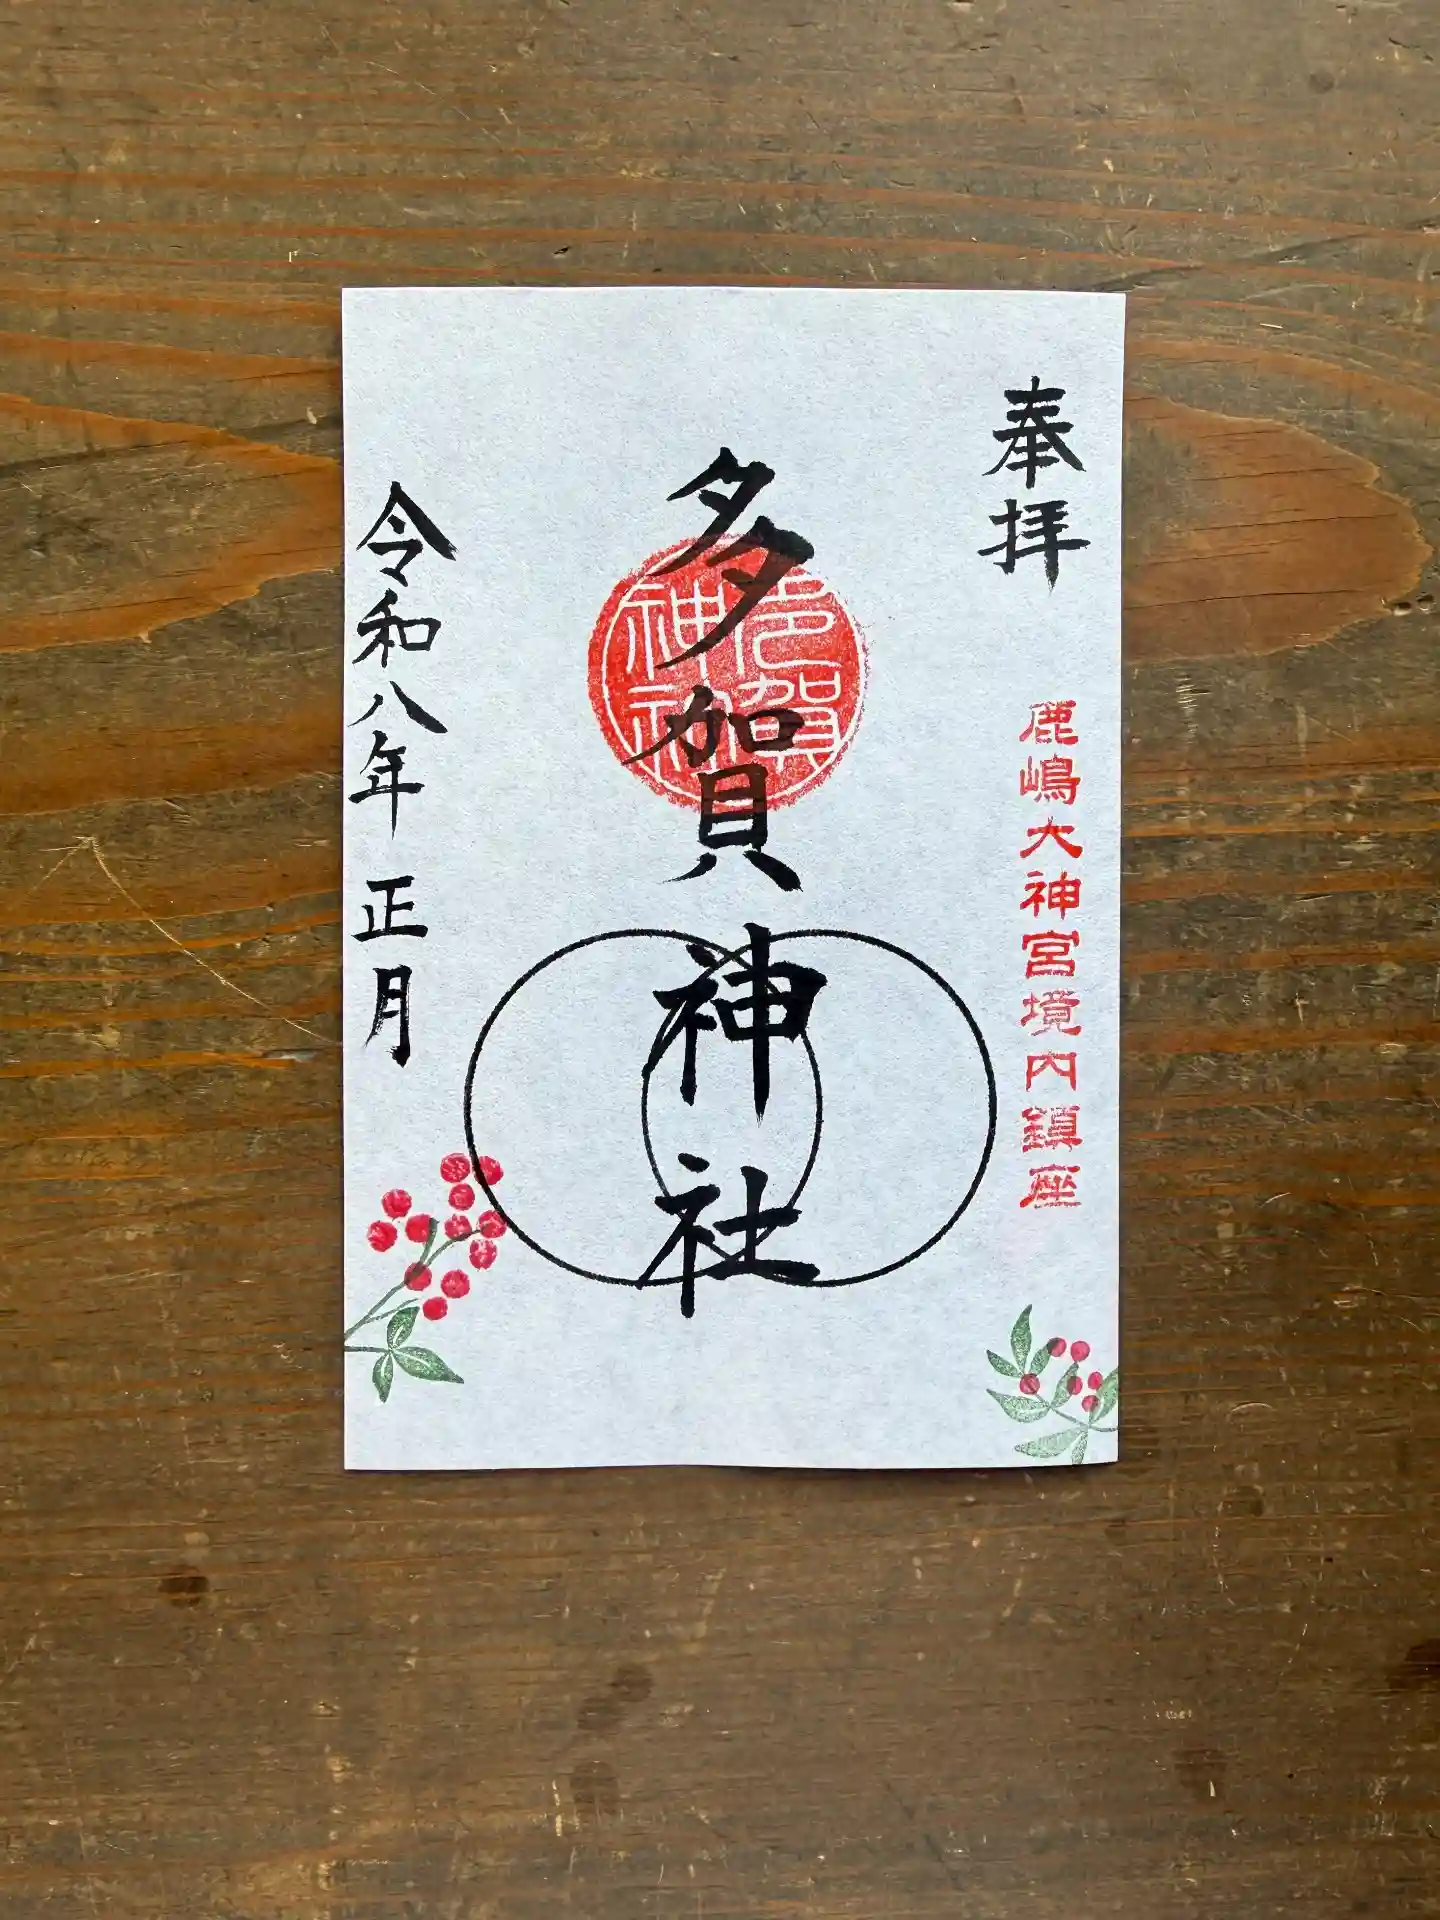 奉拝
鹿嶋大神宮境内鎮座
多賀神社
多賀
神社
令和八年 正月